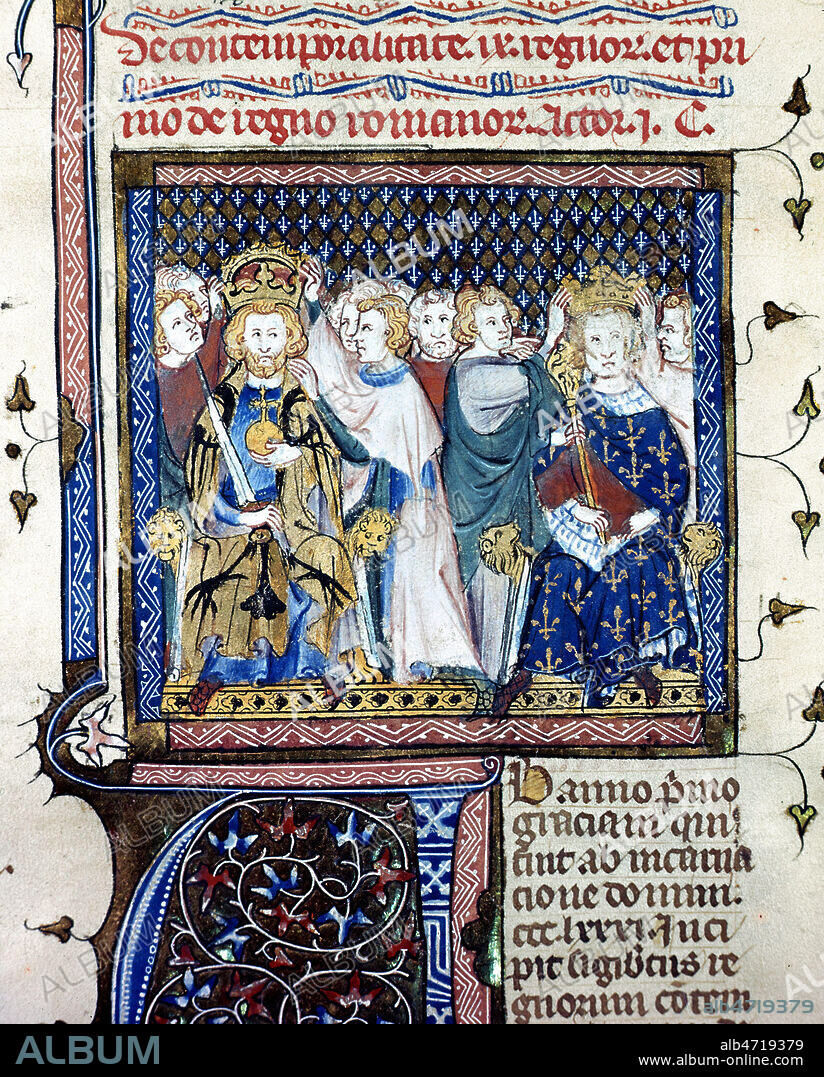 De contemporalitate. ix. regnor. et pri
mo de regno romanor. Actor. j. C.
ab anno p̄mo
graciani qui
fuit ab incarna
cione domini.
ccc. lxxxi. Inci
pit sigib̾tus re
gnorum cōtem
ALBUM
alb4719379
ALBUM
alb4719379
www.album-online.com